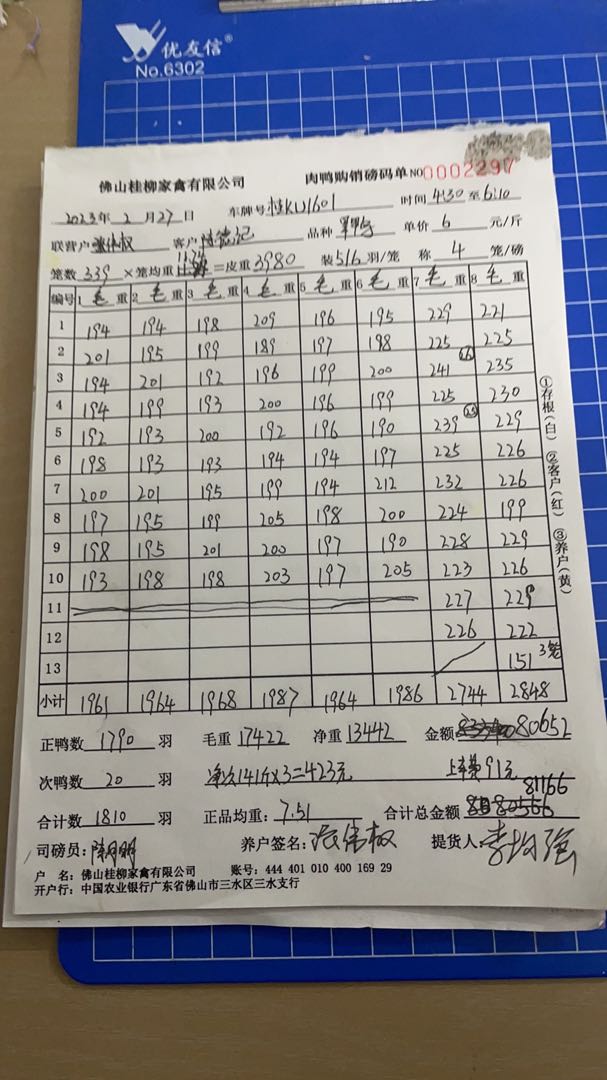 优友信®
No.6302
佛山桂柳家禽有限公司 肉鸭购销磅码单 NO 0002297
2023年 2月27日 车牌号 桂KU1601 时间 4:30 至 6:10
联营户 张伟权 客户 德记 品种 单价 6 元/斤
笼数 339 ×笼均重 11.74 =皮重 3980 装 5/6 羽/笼 称 4 笼/磅
编号 1 毛 重 2 毛 重 3 毛 重 4 毛 重 5 毛 重 6 毛 重 7 毛 重 8 毛 重
1 194 194 198 209 196 195 229 221
2 201 195 199 189 197 198 225 225
3 194 201 192 196 199 200 241 235
4 194 199 193 200 196 199 225 230
5 192 193 200 192 196 190 239 229
6 198 193 193 194 194 197 225 226
7 200 201 195 199 194 212 232 226
8 197 195 199 205 198 200 224 199
9 198 195 201 200 197 190 228 229
10 193 198 198 203 197 205 223 226
11 227 229
12 226 222
13 151 3笼
小计 1961 1964 1968 1987 1964 1986 2744 2848
正鸭数 1790 羽 毛重 17422 净重 13442 金额 80652
次鸭数 20 羽 净次141斤×3=423元 上车费91元
合计数 1810 羽 正品均重: 7.51 合计总金额 81166
司磅员: 养户签名: 张伟权 提货人: 李均强
户 名: 佛山桂柳家禽有限公司 账号: 444 401 010 400 169 29
开户行: 中国农业银行广东省佛山市三水区三水支行
①存根(白) ②客户(红) ③养户(黄)